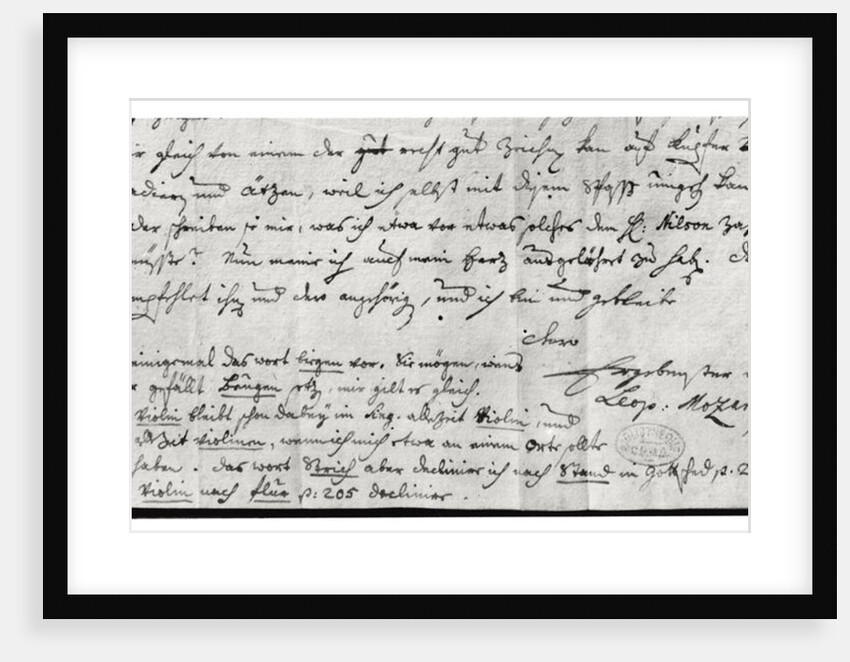 gleich von einem der gut recht gut zeichnen kan auf Kupfer
und ätzen, weil ich selbst mit diesem Spass umgeh kan
der schreiben sie mir, was ich etwa vor etwas solches dem H: Nilson za
müsste? Nun meine ich auch mein Hertz ausgelährt zu hab.
mpfehlet ihn und dero angehörig, und ich bin und gebleibe
dero
einigemal das wort biegen vor. Sie mögen, wens
Ergebenster
gefällt Beugen setz, mir gilt es gleich.
Leop: Mozar
Violin bleibt schon dabey im sing. allezeit Violin, und
allezeit violinen, wenn ich mich etwa an einem Orte sollte
haben. das wort Strich aber declinire ich nach Stand in Gottsched p. 2
Violin nach flur p: 205 declinire.